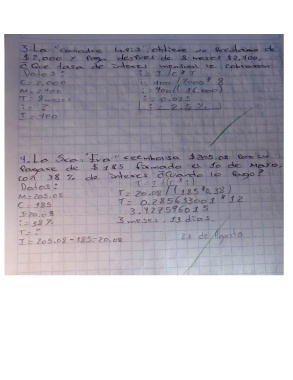 3. La "comadre Lupis" obtiene un préstamo de
$2,000 y paga después de 8 meses $2,400.
¿Que tasa de interes mensual le cobraron
Datos: i = I / C * T
C = 2,000 i = 400 / 2000 * 8
M = 2400 i = 400 / (16,000)
T = 8 meses i = 0.025
i = ? i = 2.5%
I = 400
4. La Sra. "Eva" reembolsa $205.08 por un
Pagare de $185 firmado el 10 de Mayo,
con 38% de interes ¿Cuando lo pago?
Datos: T = I / (C * i)
M = 205.08 T = 20.08 / (185 * 0.38)
C = 185 T = 0.285633001 * 12
I = 20.08 3.427596015
i = 38% 3 meses, 13 dias.
T = ?
I = 205.08 - 185 = 20.08 23 de Agosto